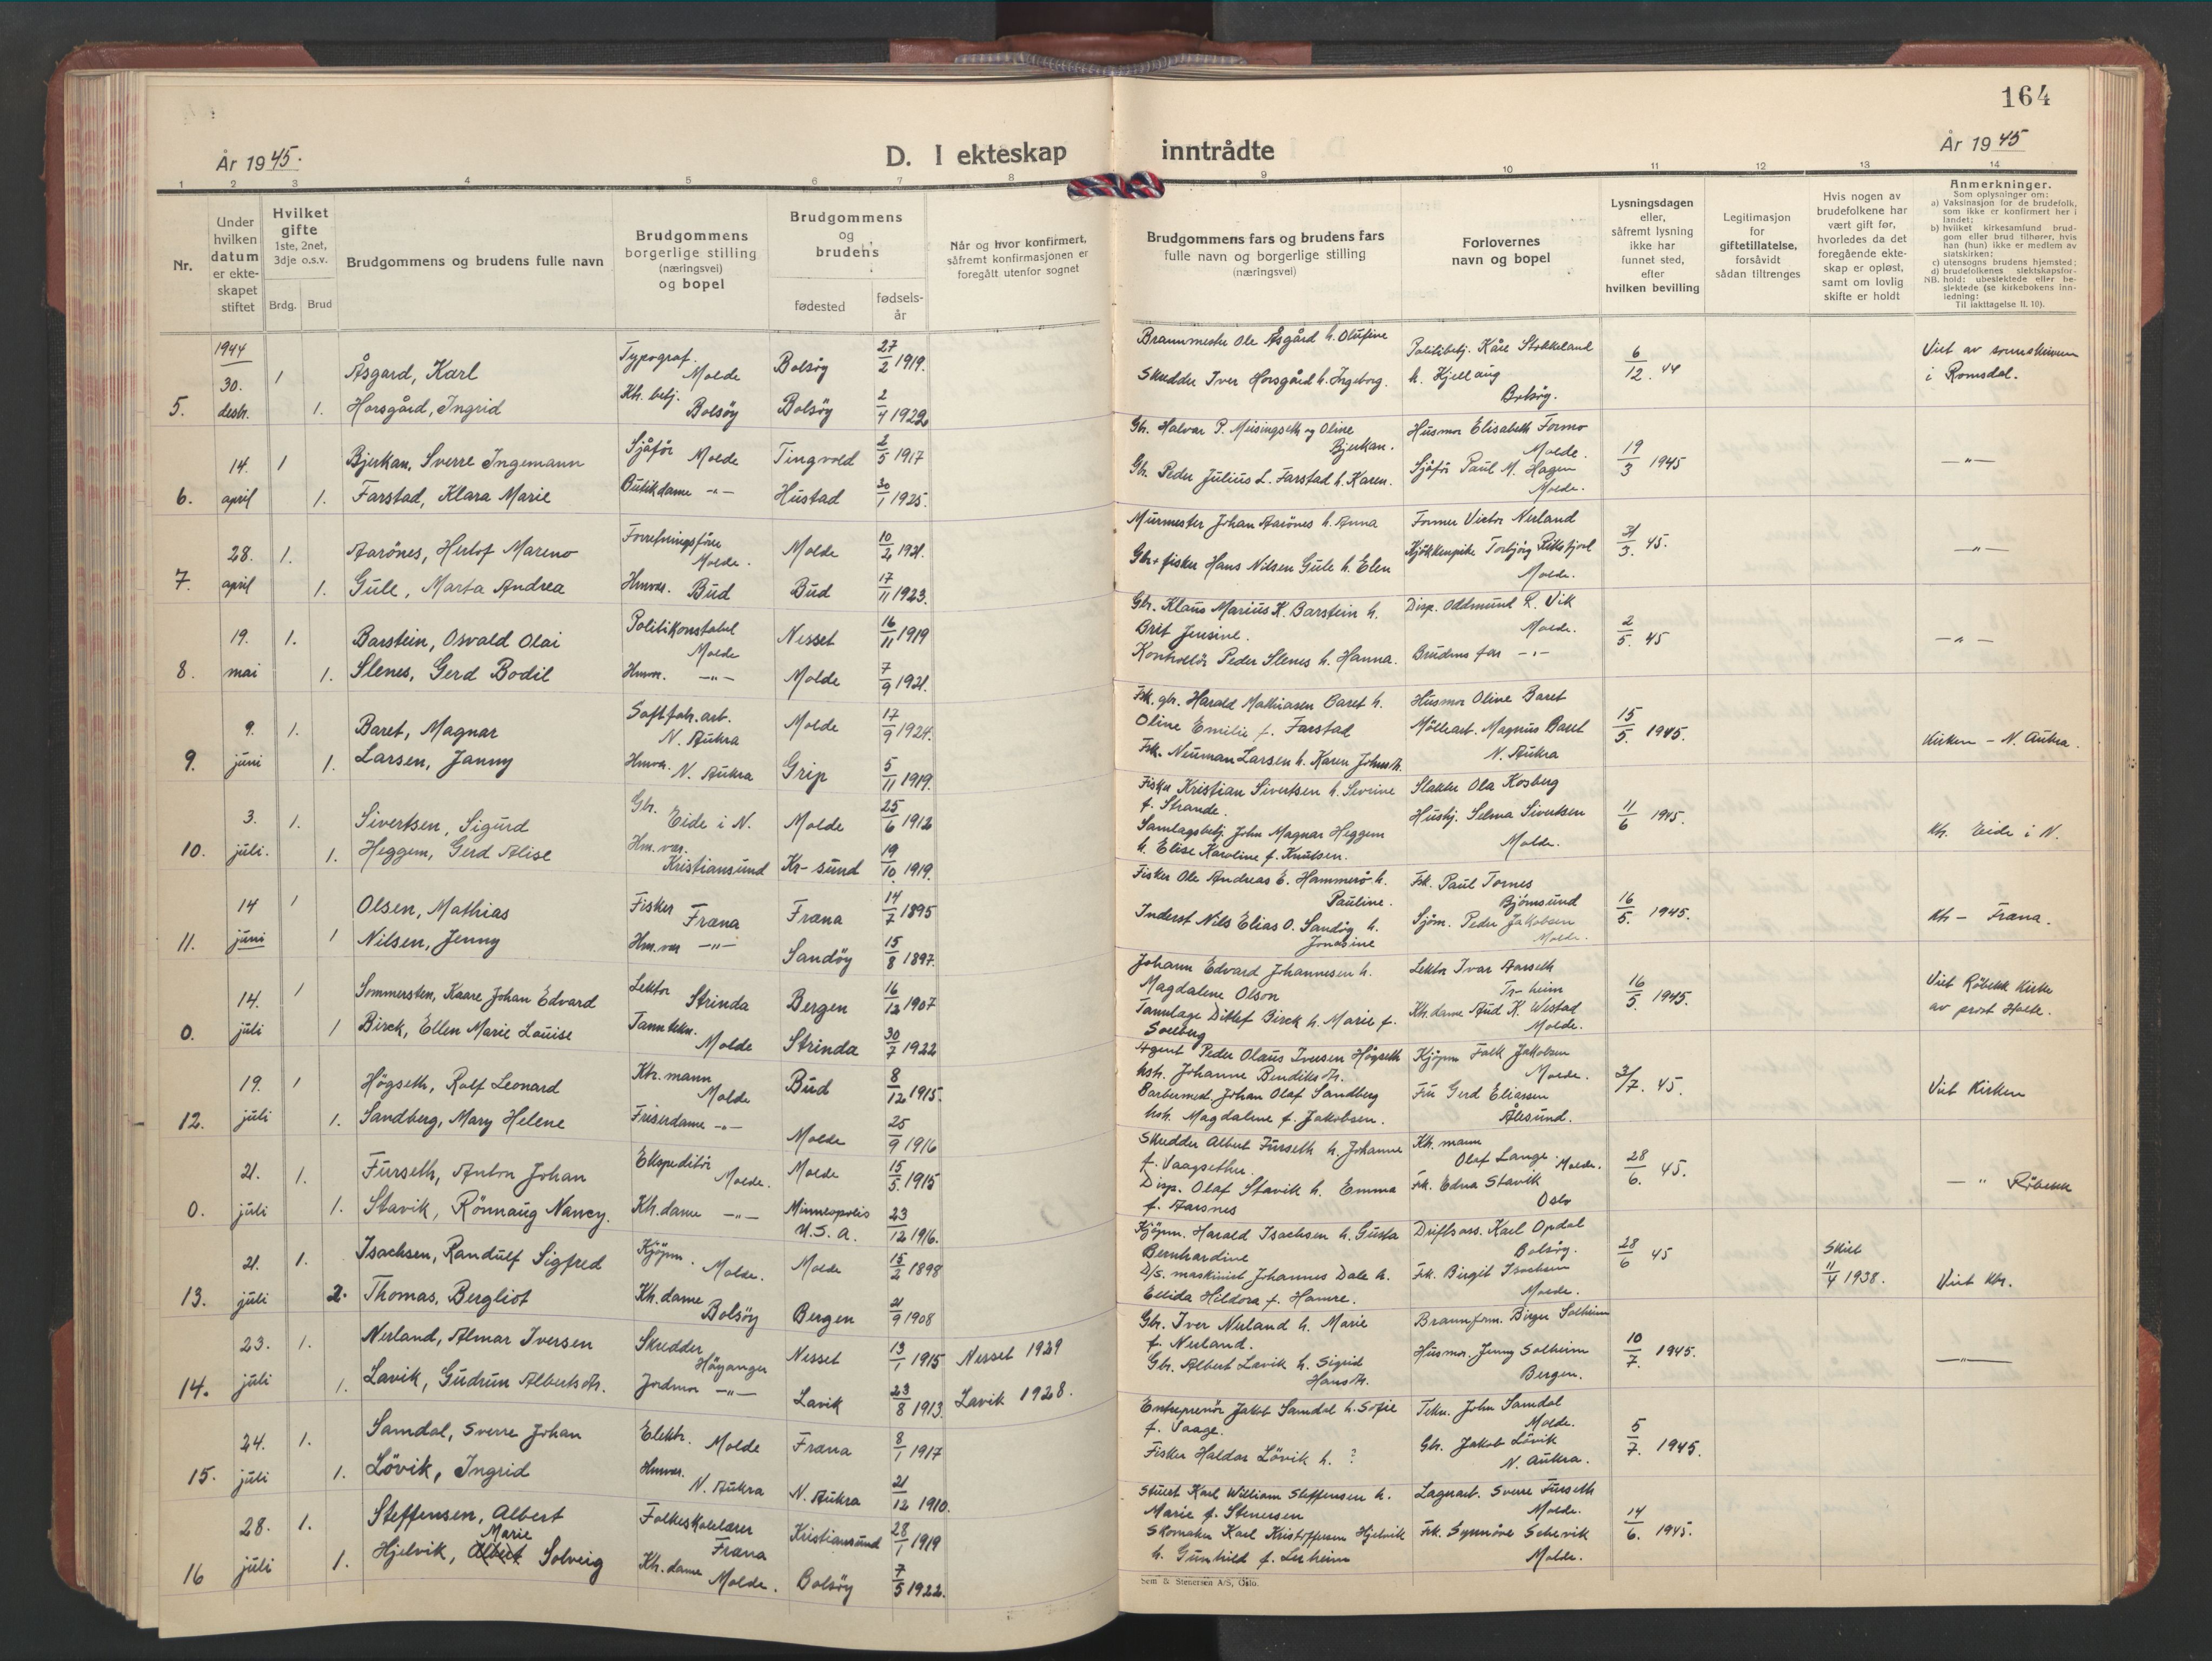 164
År 1945.
D. I ekteskap inntrådte
År 1945
1 2 3 4 5 6 7 8 9 10 11 12 13 14
Nr.
Under hvilken datum er ekteskapet stiftet
Hvilket gifte 1ste, 2net, 3dje o.s.v.
Brdg. Brud
Brudgommens og brudens fulle navn
Brudgommens borgerlige stilling (næringsvei) og bopel
Brudgommens og brudens
fødested
fødselsår
Når og hvor konfirmert, såfremt konfirmasjonen er foregått utenfor sognet
Brudgommens fars og brudens fars fulle navn og borgerlige stilling (næringsvei)
Forlovernes navn og bopel
Lysningsdagen eller, såfremt lysning ikke har funnet sted, efter hvilken bevilling
Legitimasjon for giftetillatelse, forsåvidt sådan tiltrenges
Hvis nogen av brudefolkene har vært gift før, hvorledes da det foregående ekteskap er opløst, samt om lovlig skifte er holdt
Anmerkninger.
Som oplysninger om:
a) Vaksinasjon for de brudefolk, som ikke er konfirmert her i landet;
b) hvilket kirkesamfund brudgom eller brud tilhører, hvis han (hun) ikke er medlem av statskirken;
c) utensogns brudens hjemsted;
d) brudefolkenes slektskapsforhold: ubeslektede eller beslektede (se kirkebokens innledning:
NB. Til iakttagelse II. 10).
1944
30. 1 Åsgard, Karl Typograf. Molde Bolsöy 27/2 1919. Brannmester Ole Åsgård h. Olufine Politibetj. Kåre Stokkeland 6/12. 44 Viet av sorenskriveren
5. desbr. 1. Horsgård, Ingrid Kh. betj. Bolsöy Bolsöy 2/4 1922 Skredder Iver Horsgård h. Ingeborg. h. Kjellaug Bolsöy. i Romsdal.
14. 1 Bjerkan, Sverre Ingemann Sjåför Molde Tingvold 2/5 1917 Gbr. Halvar P. Meisingseth og Oline Bjerkan. Husmor Elisabeth Formo Molde. 19/3 1945 —"—
6. april 1. Farstad, Klara Marie Butikdame -"- Hustad 30/1 1925. Gbr. Peder Julius L. Farstad h. Karen. Sjåför Paul M. Hagen Molde.
28. 1. Aarönes, Herlof Mareno Forretningsförer Molde. Molde 10/2 1921. Murmester Johan Aarönes h. Anna Former Victor Nerland 21/3. 45. —"—
7. april 1. Gule, Marta Andrea Hmvær. Bud Bud 17/11 1923. Gbr + fisker Hans Nilsen Gule h. Elen Kjökkenpike Torbjörg Molde.
19. 1. Barstein, Osvald Olai Politikonstabel Molde Nesset 16/11 1919 Gbr. Klaus Marius K. Barstein h. Brit Jensine. Disp. Oddmund R. Vik Molde. 2/5 45 —"—
8. mai 1. Slenes, Gerd Bodil Hmvær. —"— Molde 7/9 1921. Kontrollör Peder Slenes h. Hanna. Brudens far -"-
9. 1. Baret, Magnar Saftfabr. arb. N. Aukra Molde 17/9 1924. Fisk. gbr. Harald Mathiasen Baret h. Oline Emilie f. Farstad Husmor Oline Baret 15/5. 1945.
9. juni 1. Larsen, Janny Hmvær. N. Aukra Grip 5/11 1919. Fisk. Neuman Larsen h. Karen Johnsdtr. Möllearb. Magnus Baret N. Aukra Kirken - N. Aukra.
3. 1. Sivertsen, Sigurd Gbr. Eide i N. Molde 25/6 1912 Fisker Kristian Sivertsen h. Severine f. Strande. Slakter Ola Kosberg 11/6 1945.
10. juli. 1. Heggem, Gerd Alise Hm. vær. Kristiansund Kr-sund 19/10 1919. Samlagsbetj. John Magnar Heggem h. Elise Karoline f. Knutsen. Hushj. Selma Sivertsen Molde. Kh. Eide i N.
14 1 Olsen, Mathias Fisker Fræna Fræna 14/7 1895 Fisker Ole Andreas E. Hammerö h. Pauline. Fisk. Paul Tornes Björnsund 16/5. 1945.
11. juni 1 Nilsen, Jenny Hm.vær —"— Sandöy 15/8 1897. Inderst Nils Elias O. Sandöy h. Jonasine Sjöm. Peder Jakobsen Molde. Kh - Fræna.
14. 1 Sommersten, Kaare Johan Edvard Lektor Strinda Bergen 16/12 1907 Johann Edvard Johannesen h. Magdalene Olson Lektor Ivar Aarseth Tr-heim 16/5 1945. Viet Röbekk Kirke
0. juli 1 Birck, Ellen Marie Louise Tanntekn. Molde Strinda 30/7 1922 Tannlæge Ditlef Birck h. Marie f. Solberg Kh. dame Aud K. Westad Molde. av prost Holte.
19. 1 Högseth, Rolf Leonard Ktr. mann Molde Bud 8/12 1915. Agent Peder Olaus Iversen Högseth hsh. Johanne Bendiksdtr. Kjöpm Falk Jakobsen Molde. 2/7. 45. Viet Kirken
12. juli 1. Sandberg, Mary Helene Friserdame -"- Molde 25/9 1916 Barbermest. Johan Olaf Sandberg hsh. Magdalene f. Jakobsen. Fru Gerd Eliassen Ålesund.
21. 1. Furseth, Anton Johan Ekspeditör Molde. Molde 15/5 1915 Skredder Albert Furseth h. Johanne f. Vaagsether. Kth. mann Olaf Lange. Molde. 28/6. 45.
0. juli 1. Stavik, Rönnaug Nancy. Kh. dame —"— Minneapolis U.S.A. 23/12 1916. Disp. Olaf Stavik h. Emma f. Aarsnes Frk. Edna Stavik Oslo —" Röbekk
21. 1. Isachsen, Randulf Sigfred Kjöpm. Molde. Molde 15/2 1898 Kjöpm. Harald Isachsen h. Gusta Bernhardine Driftsass. Karl Opdal Bolsöy. 28/6 45 Skilt 11/4 1938.
13. juli 2. Thomas, Bergliot Kh. dame Bolsöy Bergen 21/9 1908 D/S. maskinist Johannes Dale h. Ellida Hildora f. Hamre. Frk. Birgit Isachsen Molde. Viet Kh.
23. 1. Nerland, Almar Iversen Skredder Höyanger Nesset 13/1 1915 Nesset 1929 Gbr. Iver Nerland h. Marie f. Nerland. Brannform. Birger Solheim 10/7. 1945. —"—
14. juli 1. Lavik, Gudrun Albertsdtr. Jordmor —"— Lavik 23/8 1913. Lavik 1928. Gbr. Albert Lavik h. Sigrid Hansdtr. Husmor. Jenny Solheim Bergen.
24. 1. Samdal, Sverre Johan Elektr. Molde Fræna 8/1 1917 Entreprenör Jakob Samdal h. Sofie f. Vaage. Tekn. John Samdal Molde. 5/7. 1945.
15. juli 1. Lövik, Ingrid Hmvær. N. Aukra N. Aukra 21/12 1910. Fisker Haldor Lövik h. ? Gbr. Jakob Lövik N. Aukra.
28. 1. Steffensen, Albert Folkeskolelærer Fræna Kristiansund 28/1 1919 Stuert Karl William Steffensen h. Marie f. Stenersen Lagerarb. Sverre Furseth Molde. 14/6. 1945.
16 juli 1. Hjelvik, Marie Solveig Kh. dame Molde. Bolsöy 7/5 1922. Skomaker Karl Kristoffersen Hjelvik h. Gunhild f. Lerheim Frk. Synnöve Schevik Molde.
Sem & Stenersen A/S, Oslo.